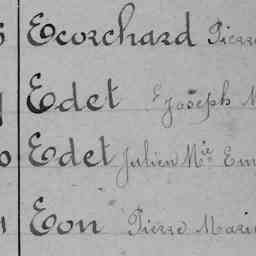 Ecorchard Pierre
Edet Joseph M
Edet Julien Mie Em
Eon Pierre Marie